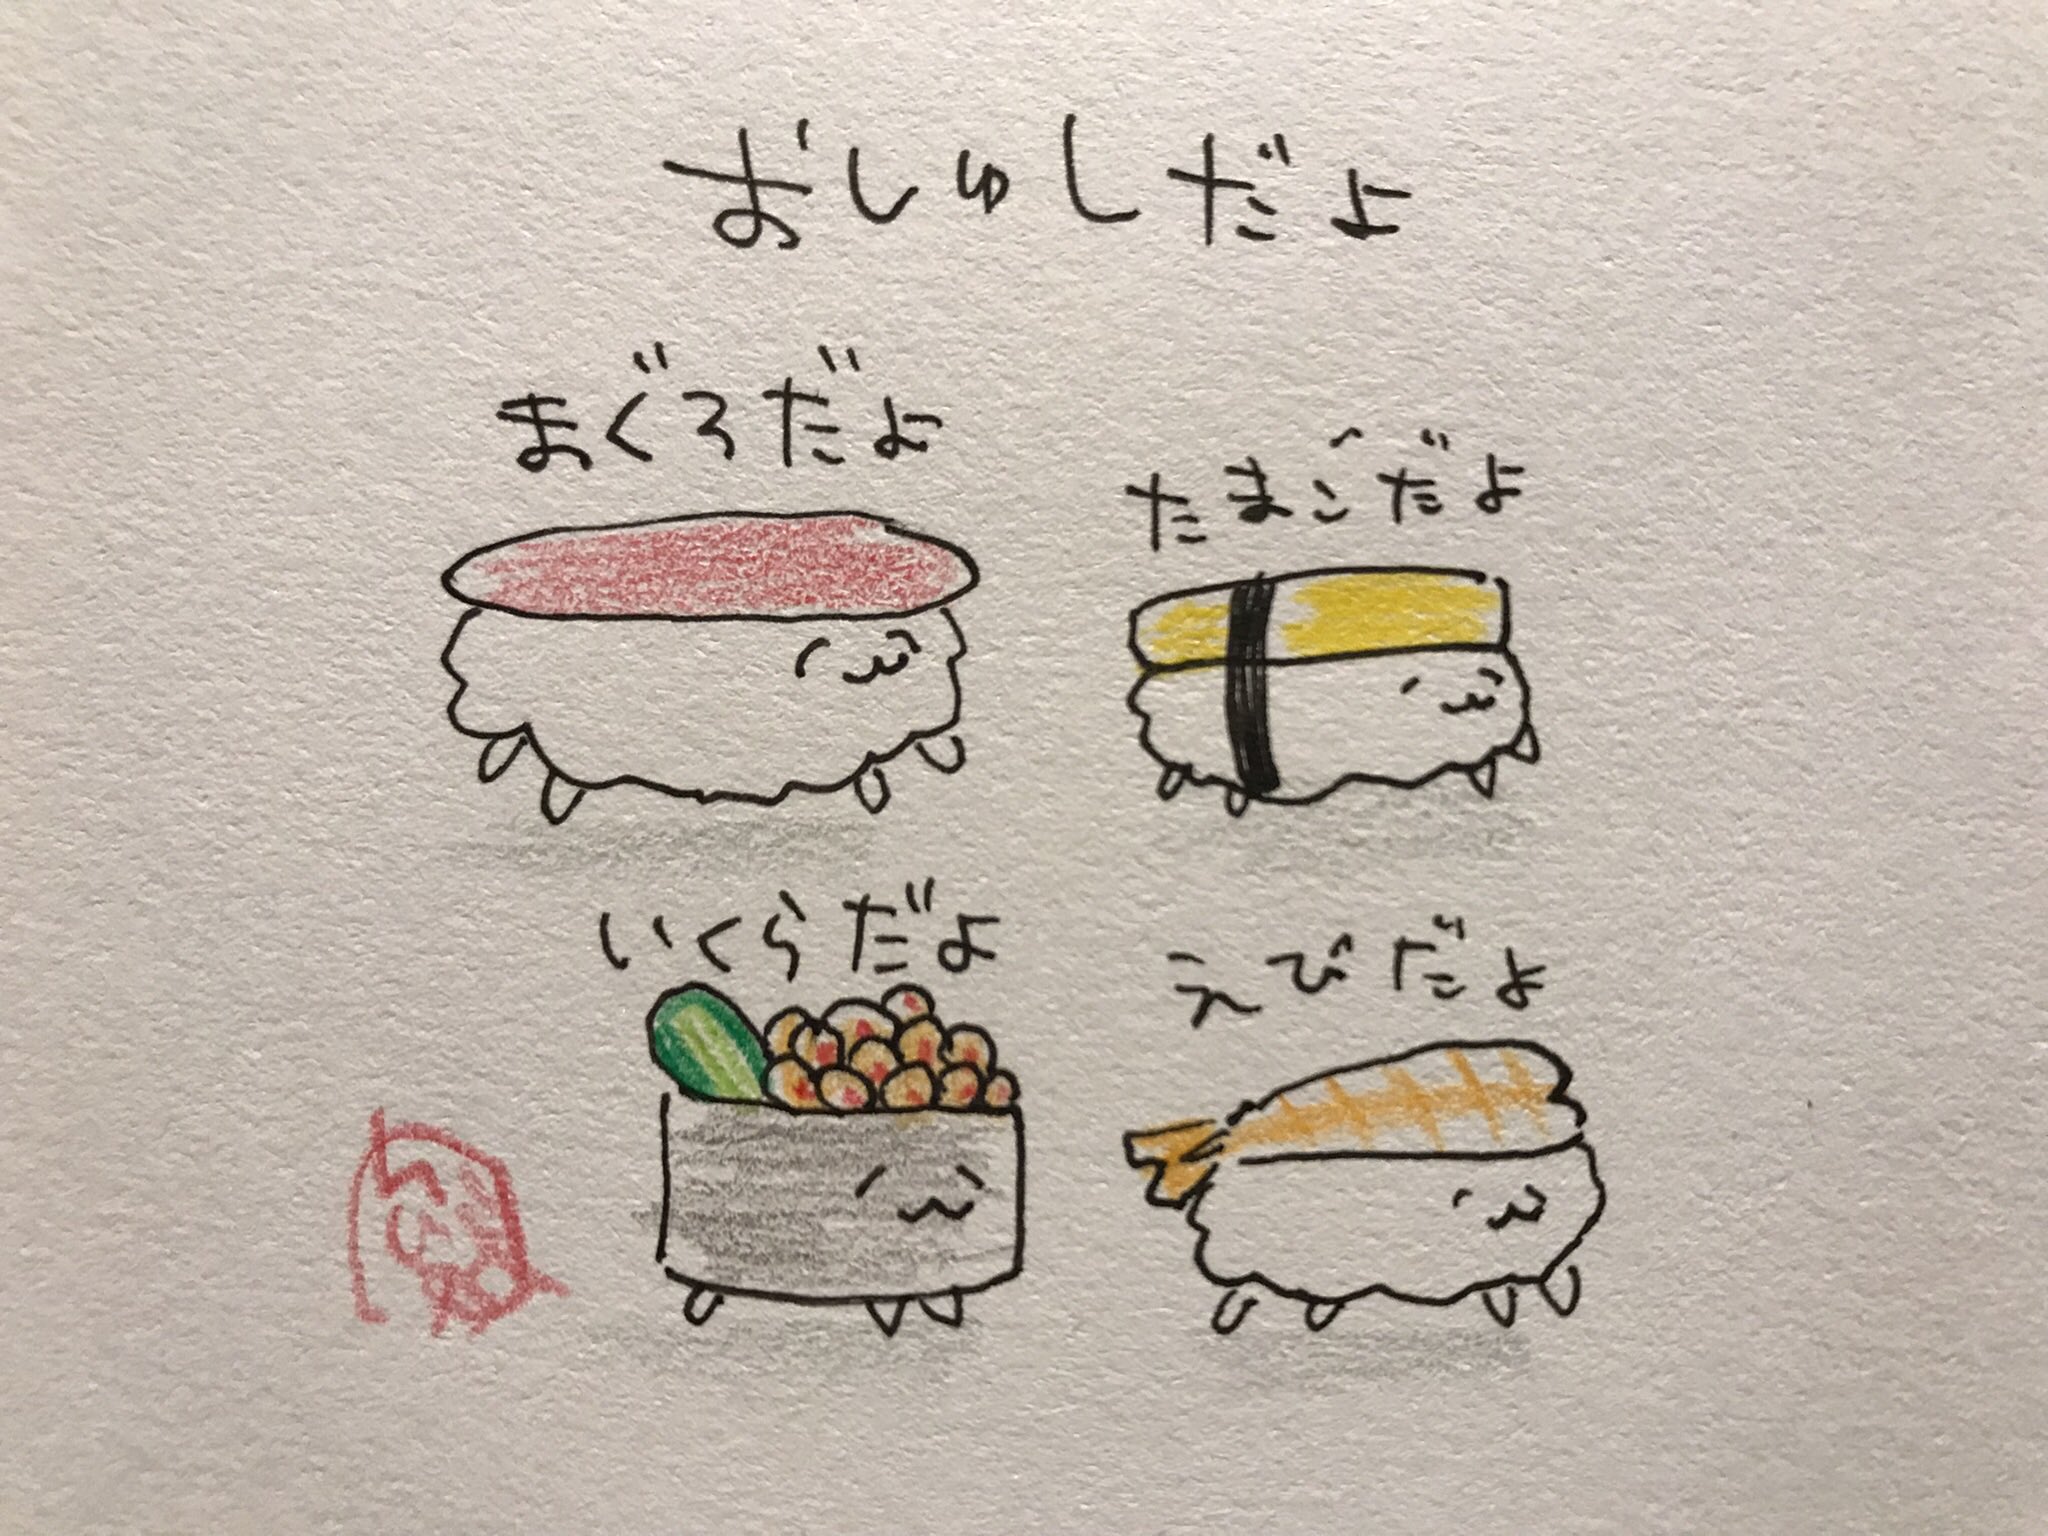 おしゅしだよ
まぐろだよ
たまごだよ
いくらだよ
えびだよ